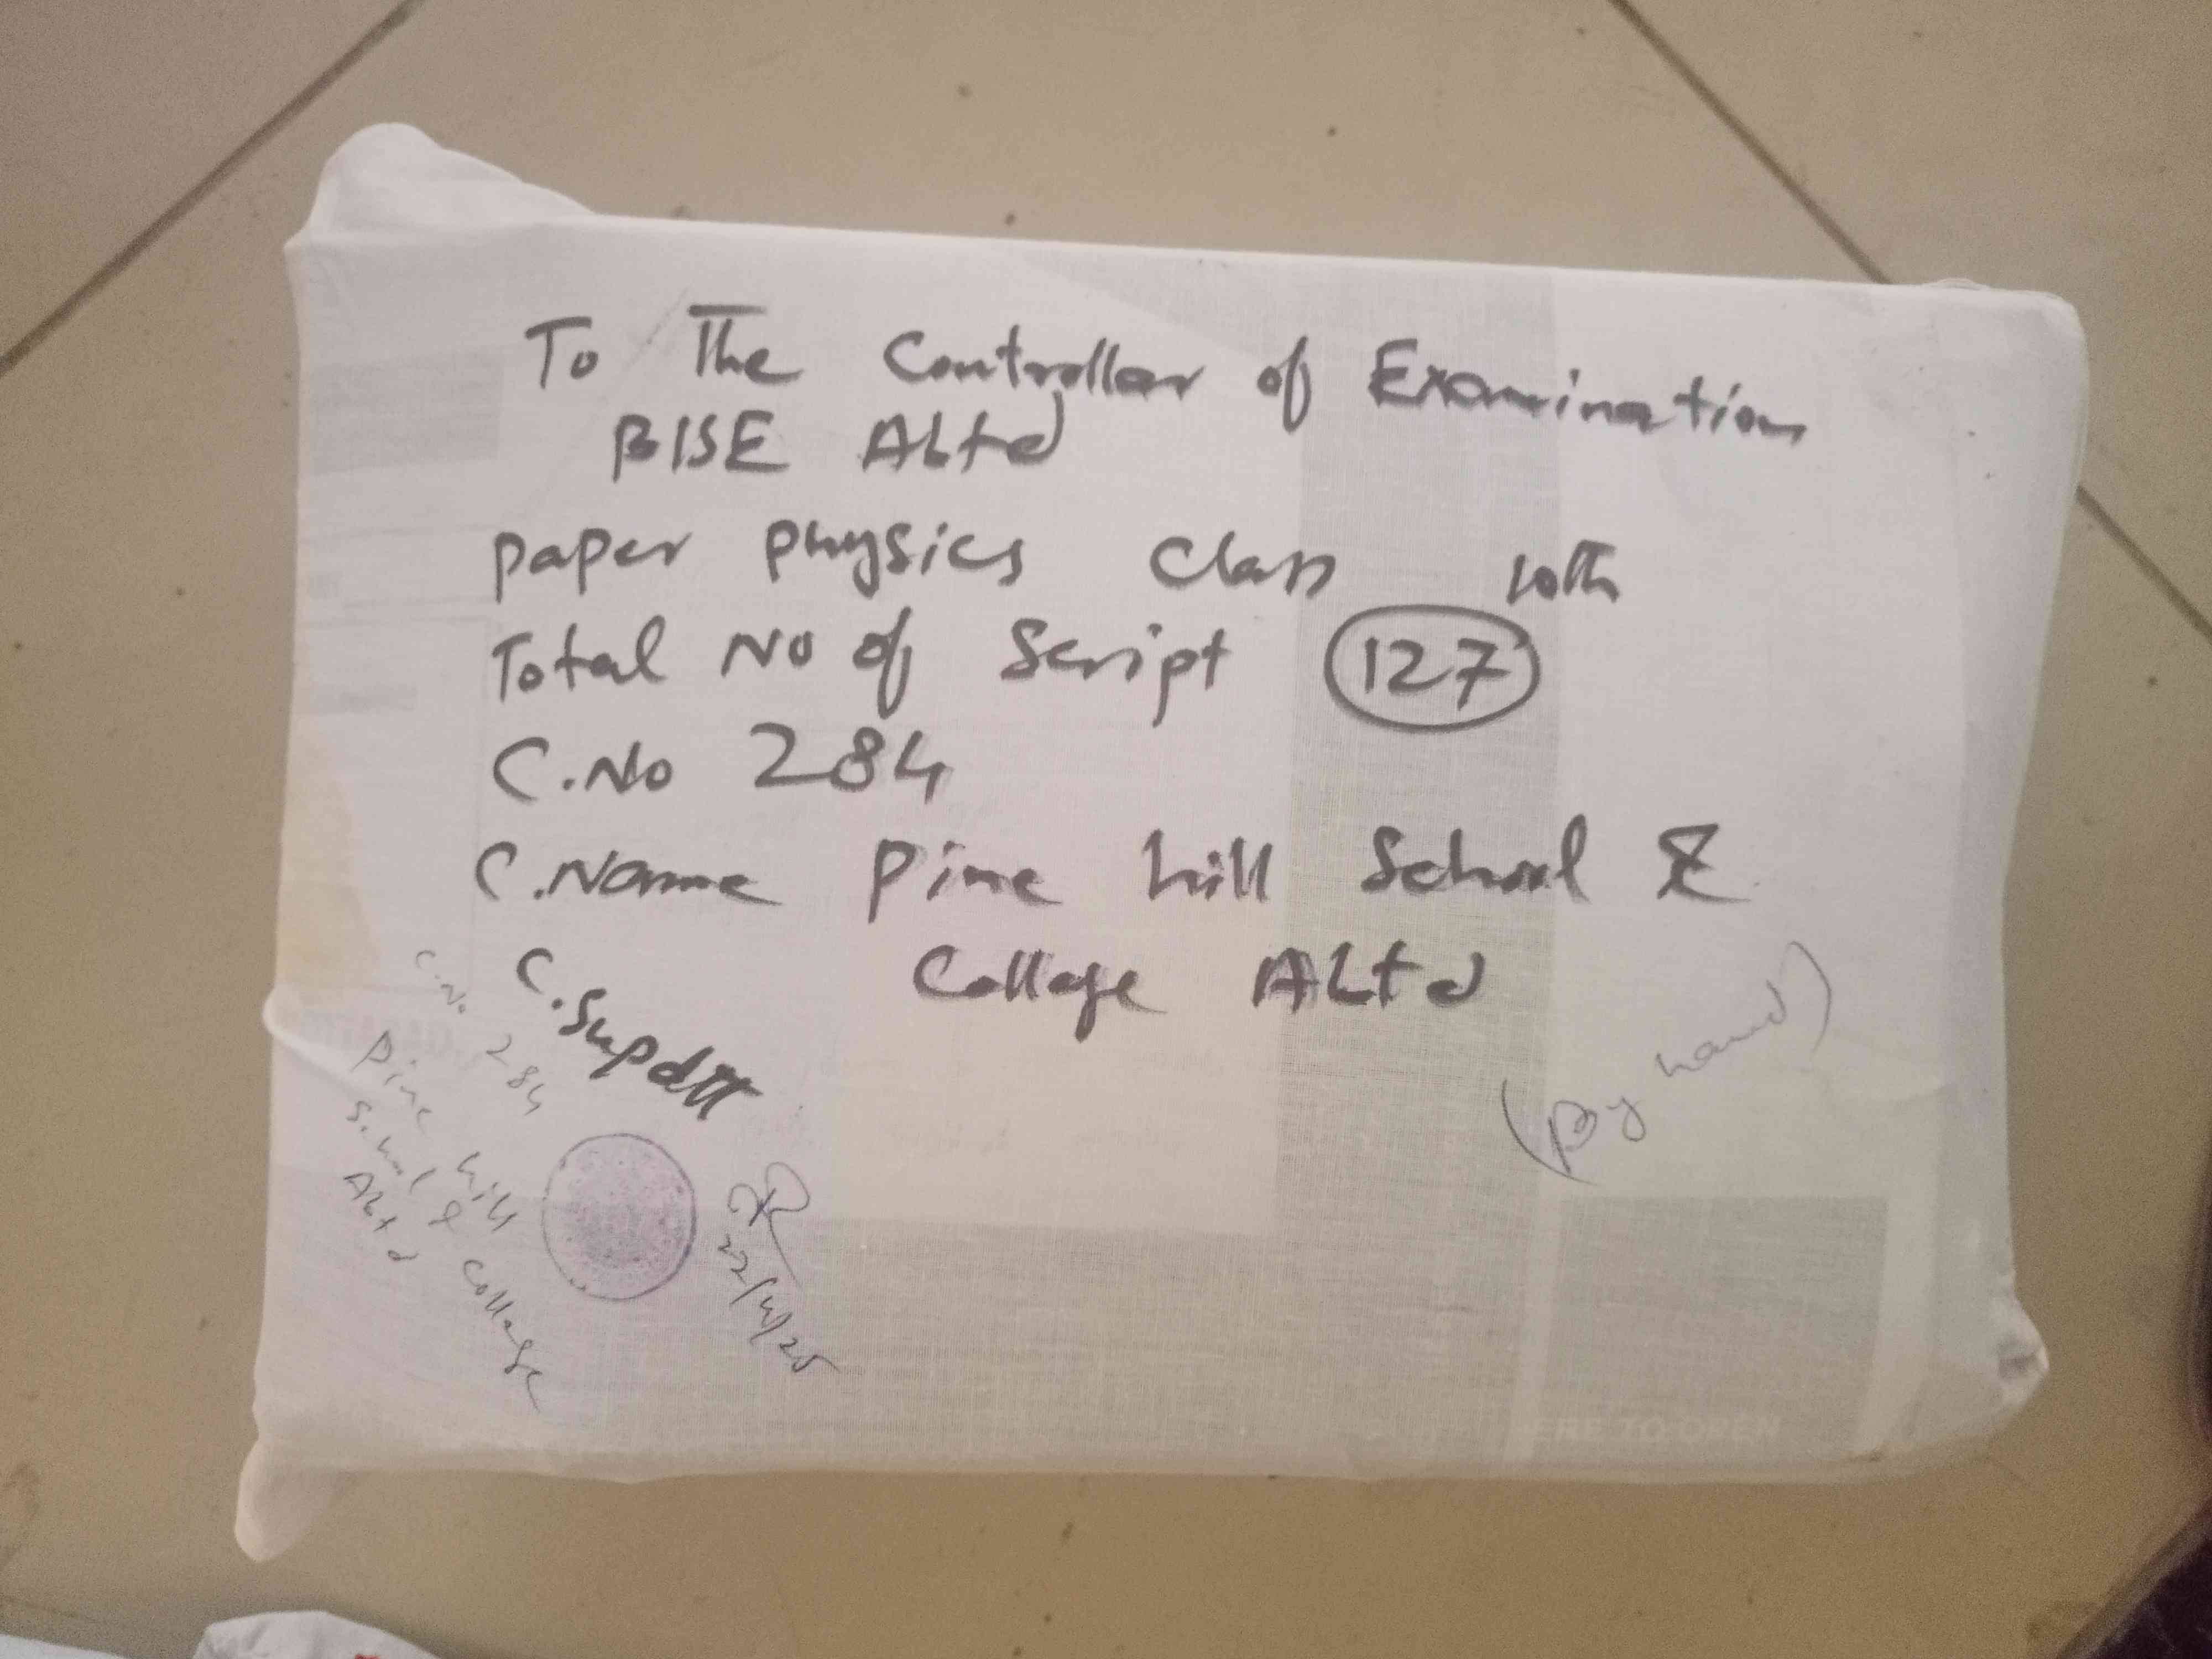 To The Controller of Examination
BISE Abtd
paper physics Class 10th
Total No of Script 127
C.No 284
C.Name Pine hill School &
College Abtd
C.Supdtt
(By hand)
C.No 284
Pine hill
School & College
Abtd
22/4/25
ERE TO OPEN